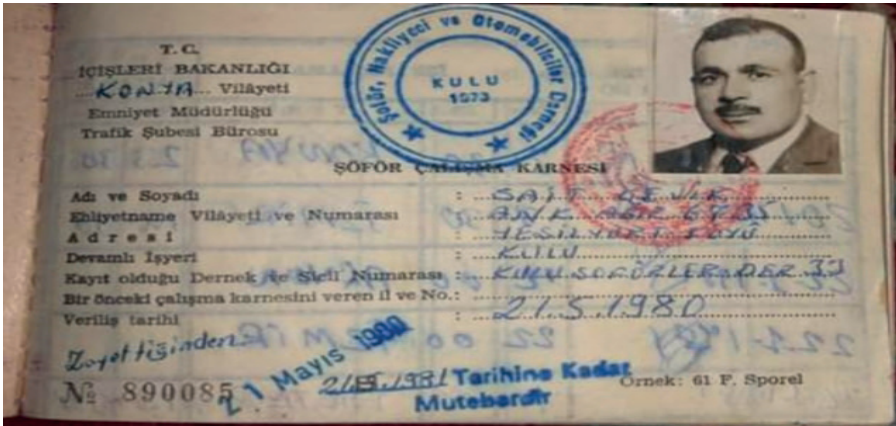 T. C.
İÇİŞLERİ BAKANLIĞI
KONYA Vilâyeti
Emniyet Müdürlüğü
Trafik Şubesi Bürosu
Şoför, Nakliyeci ve Otomobilciler Derneği
KULU
1973
ŞÖFÖR ÇALIŞMA KARNESİ
Adı ve Soyadı : SAİT
Ehliyetname Vilâyeti ve Numarası : ANKARA
Adresi : YEŞİLYURT KÖYÜ
Devamlı İşyeri : KULU
Kayıt olduğu Dernek ve Sicil Numarası : KULU ŞOFÖRLER DER 33
Bir önceki çalışma karnesini veren il ve No.:
Veriliş tarihi : 21.5.1980
Zayettiğinden
21 Mayıs 1980
№ 890085
1981 Tarihine Kadar
Muteberdir
Örnek: 61 F. Sporel